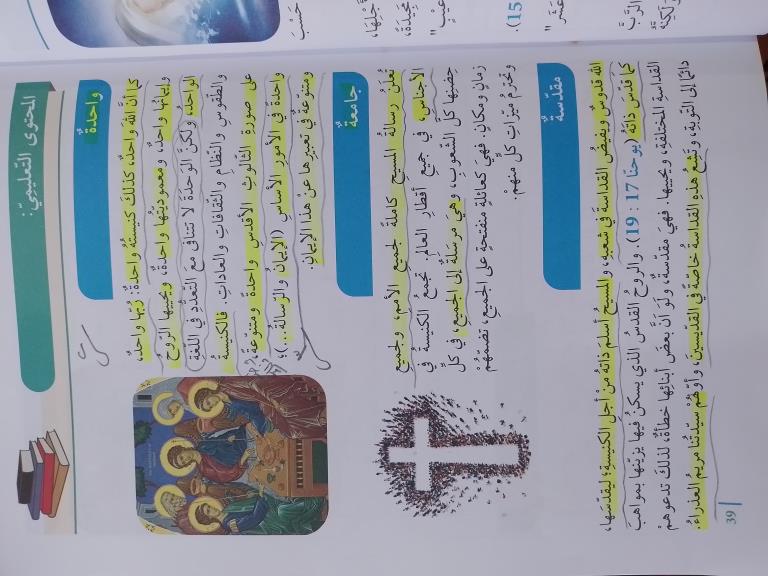 المحتوى التعليميّ:
واحدةٌ
كما أنَّ اللهَ واحدٌ، كذلكَ كنيستُهُ واحدةٌ: ربُّها واحدٌ،
وإيمانُها واحدٌ، ومعموديّتُها واحدةٌ، ويحييها الرّوحُ
الواحدُ، ولكنَّ الوَحدَةَ لا تتنافى معَ التّعدُّدِ في اللّغةِ
والطّقوسِ والنّظامِ والثّقافاتِ والعاداتِ. فالكنيسةُ
على صورةِ الثّالوثِ الأقدسِ واحدةٌ ومتنوّعةٌ،
واحدةٌ في الأمورِ الأساسِ (الإيمانُ والرّسالةُ...)،
ومتنوّعةٌ في تعبيرِها عن هذا الإيمانِ.
جامعةٌ
تُعلنُ رسالةَ المسيحِ كاملةً لجميعِ الأممِ، ولجميعِ
الأجناسِ، في جميعِ أقطارِ العالمِ. تجمعُ الكنيسةُ في
حضنِها كلَّ الشّعوبِ، وهيَ مرسَلةٌ إلى الجميعِ، في كلِّ
زمانٍ ومكانٍ. فهيَ كعائلةٍ منفتحةٍ على الجميعِ، تضمّهمْ
وتحترمُ ميّزاتِ كلٍّ منهمْ.
مقدّسةٌ
اللهُ قدّوسٌ ويفيضُ القداسةَ في شعبِهِ، والمسيحُ أسلمَ ذاتَهُ منْ أجلِ الكنيسةِ؛ ليقدّسَها،
كما قدّسَ ذاتَهُ (يوحنّا 17 : 19). والرّوحُ القدسُ الّذي يسكنُ فيها يزيّنُها بمواهبِ
القداسةِ المختلفةِ، ويحييها. فهيَ مقدّسةٌ، ولوْ أنَّ بعضَ أبنائِها خطأةٌ، لذلكَ تدعوهمْ
دائمًا إلى التّوبةِ، وتشعُّ هذهِ القداسةُ خاصّةً في القدّيسينَ، وأوّلُهمْ سيّدتُنا مريمُ العذراءُ.
39
حَسْبَ
أَجْلِهَا،
مَجِيدَةً،
عَيْبٍ"
15).
عَشَر"
الرَّبَّ